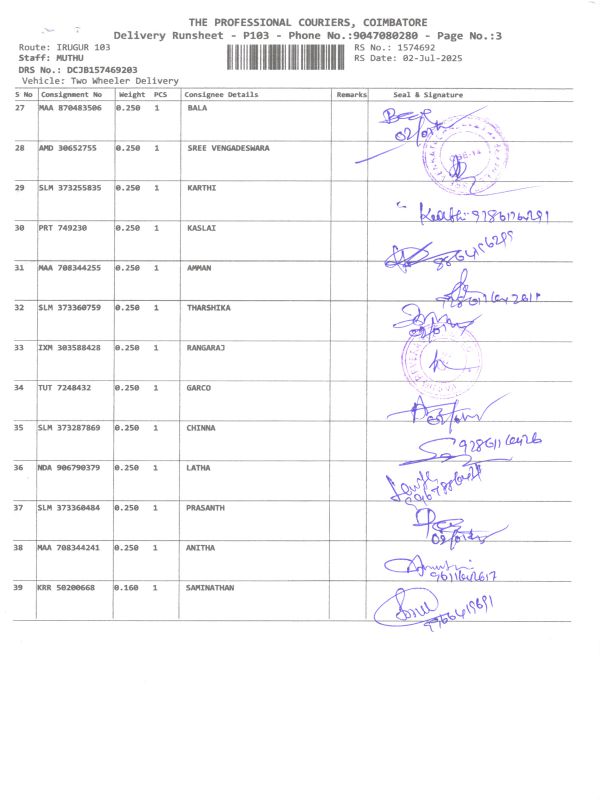 THE PROFESSIONAL COURIERS, COIMBATORE
Delivery Runsheet - P103 - Phone No.:9047080280 - Page No.:3
Route: IRUGUR 103
RS No.: 1574692
Staff: MUTHU
RS Date: 02-Jul-2025
DRS No.: DCJB157469203
Vehicle: Two Wheeler Delivery
S No Consignment No Weight PCS Consignee Details Remarks Seal & Signature
27 MAA 870483506 0.250 1 BALA
28 AMD 30652755 0.250 1 SREE VENGADESWARA
29 SLM 373255835 0.250 1 KARTHI
30 PRT 749230 0.250 1 KASLAI
31 MAA 708344255 0.250 1 AMMAN
32 SLM 373360759 0.250 1 THARSHIKA
33 IXM 303588428 0.250 1 RANGARAJ
34 TUT 7248432 0.250 1 GARCO
35 SLM 373287869 0.250 1 CHINNA
36 NDA 906790379 0.250 1 LATHA
37 SLM 373360484 0.250 1 PRASANTH
38 MAA 708344241 0.250 1 ANITHA
39 KRR 50200668 0.160 1 SAMINATHAN